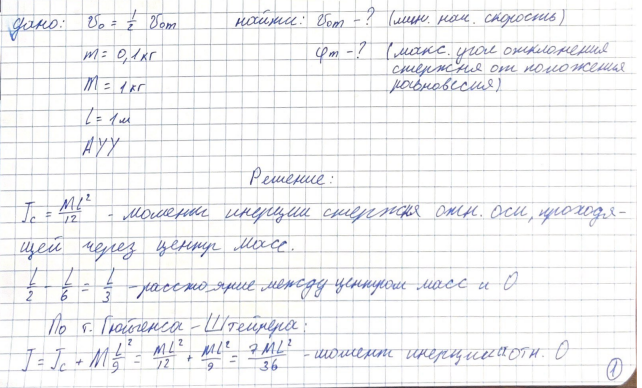 Дано: v₀ = 1/2 v₀m найти: v₀m - ? (мин. нач. скорость)
m = 0,1 кг φm - ? (макс. угол отклонения
стержня от положения
равновесия)
M = 1 кг
L = 1 м
АУУ
Решение:
Jc = ML²/12 - момент инерции стержня отн. оси, проходя-
щей через центр масс.
L/2 - L/6 = L/3 - расстояние между центром масс и O
По т. Гюйгенса-Штейнера:
J = Jc + M L²/9 = ML²/12 + ML²/9 = 7ML²/36 - момент инерции отн. O
1